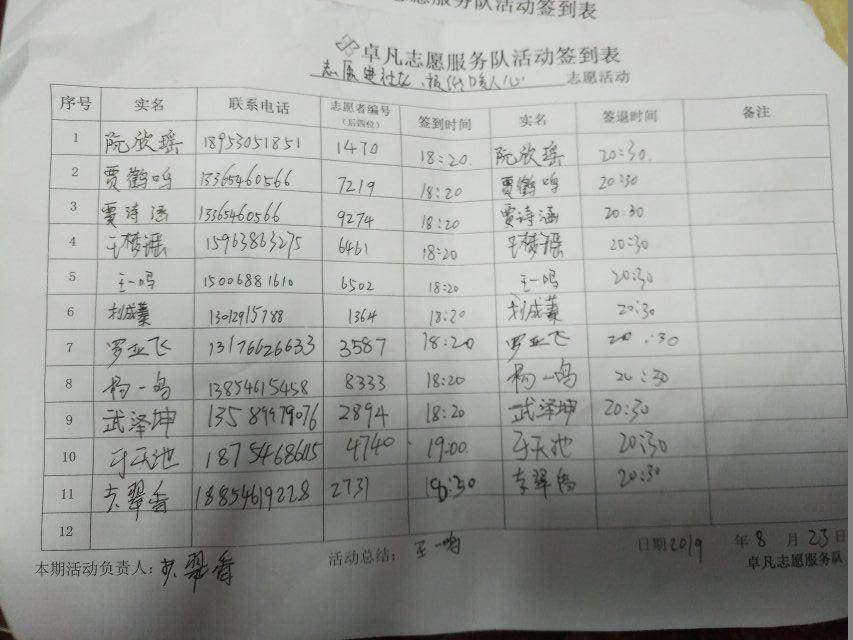 志愿服务队活动签到表
卓凡志愿服务队活动签到表
志愿进社区,传人心 志愿活动
序号 实名 联系电话 志愿者编号(后四位) 签到时间 实名 签退时间 备注
1 阮欣瑶 18953051851 1470 18:20 阮欣瑶 20:30
2 贾鹤鸣 13365460566 7219 18:20 贾鹤鸣 20:30
3 贾诗涵 13365460566 9274 18:20 贾诗涵 20:30
4 王梦谣 15963863275 6461 18:20 王梦谣 20:30
5 王一鸣 15006881610 6502 18:20 王一鸣 20:30
6 刘成蓁 13012915788 1364 18:20 刘成蓁 20:30
7 罗亚飞 13176626633 3587 18:20 罗亚飞 20:30
8 杨一鸣 13854615458 8333 18:20 杨一鸣 20:30
9 武泽坤 13589979076 2894 18:20 武泽坤 20:30
10 于天池 18754686115 4740 19:00 于天池 20:30
11 翠香 18854619228 2731 18:30 翠香 20:30
12
本期活动负责人: 翠香 活动总结: 王一鸣 日期2019年8月23日
卓凡志愿服务队